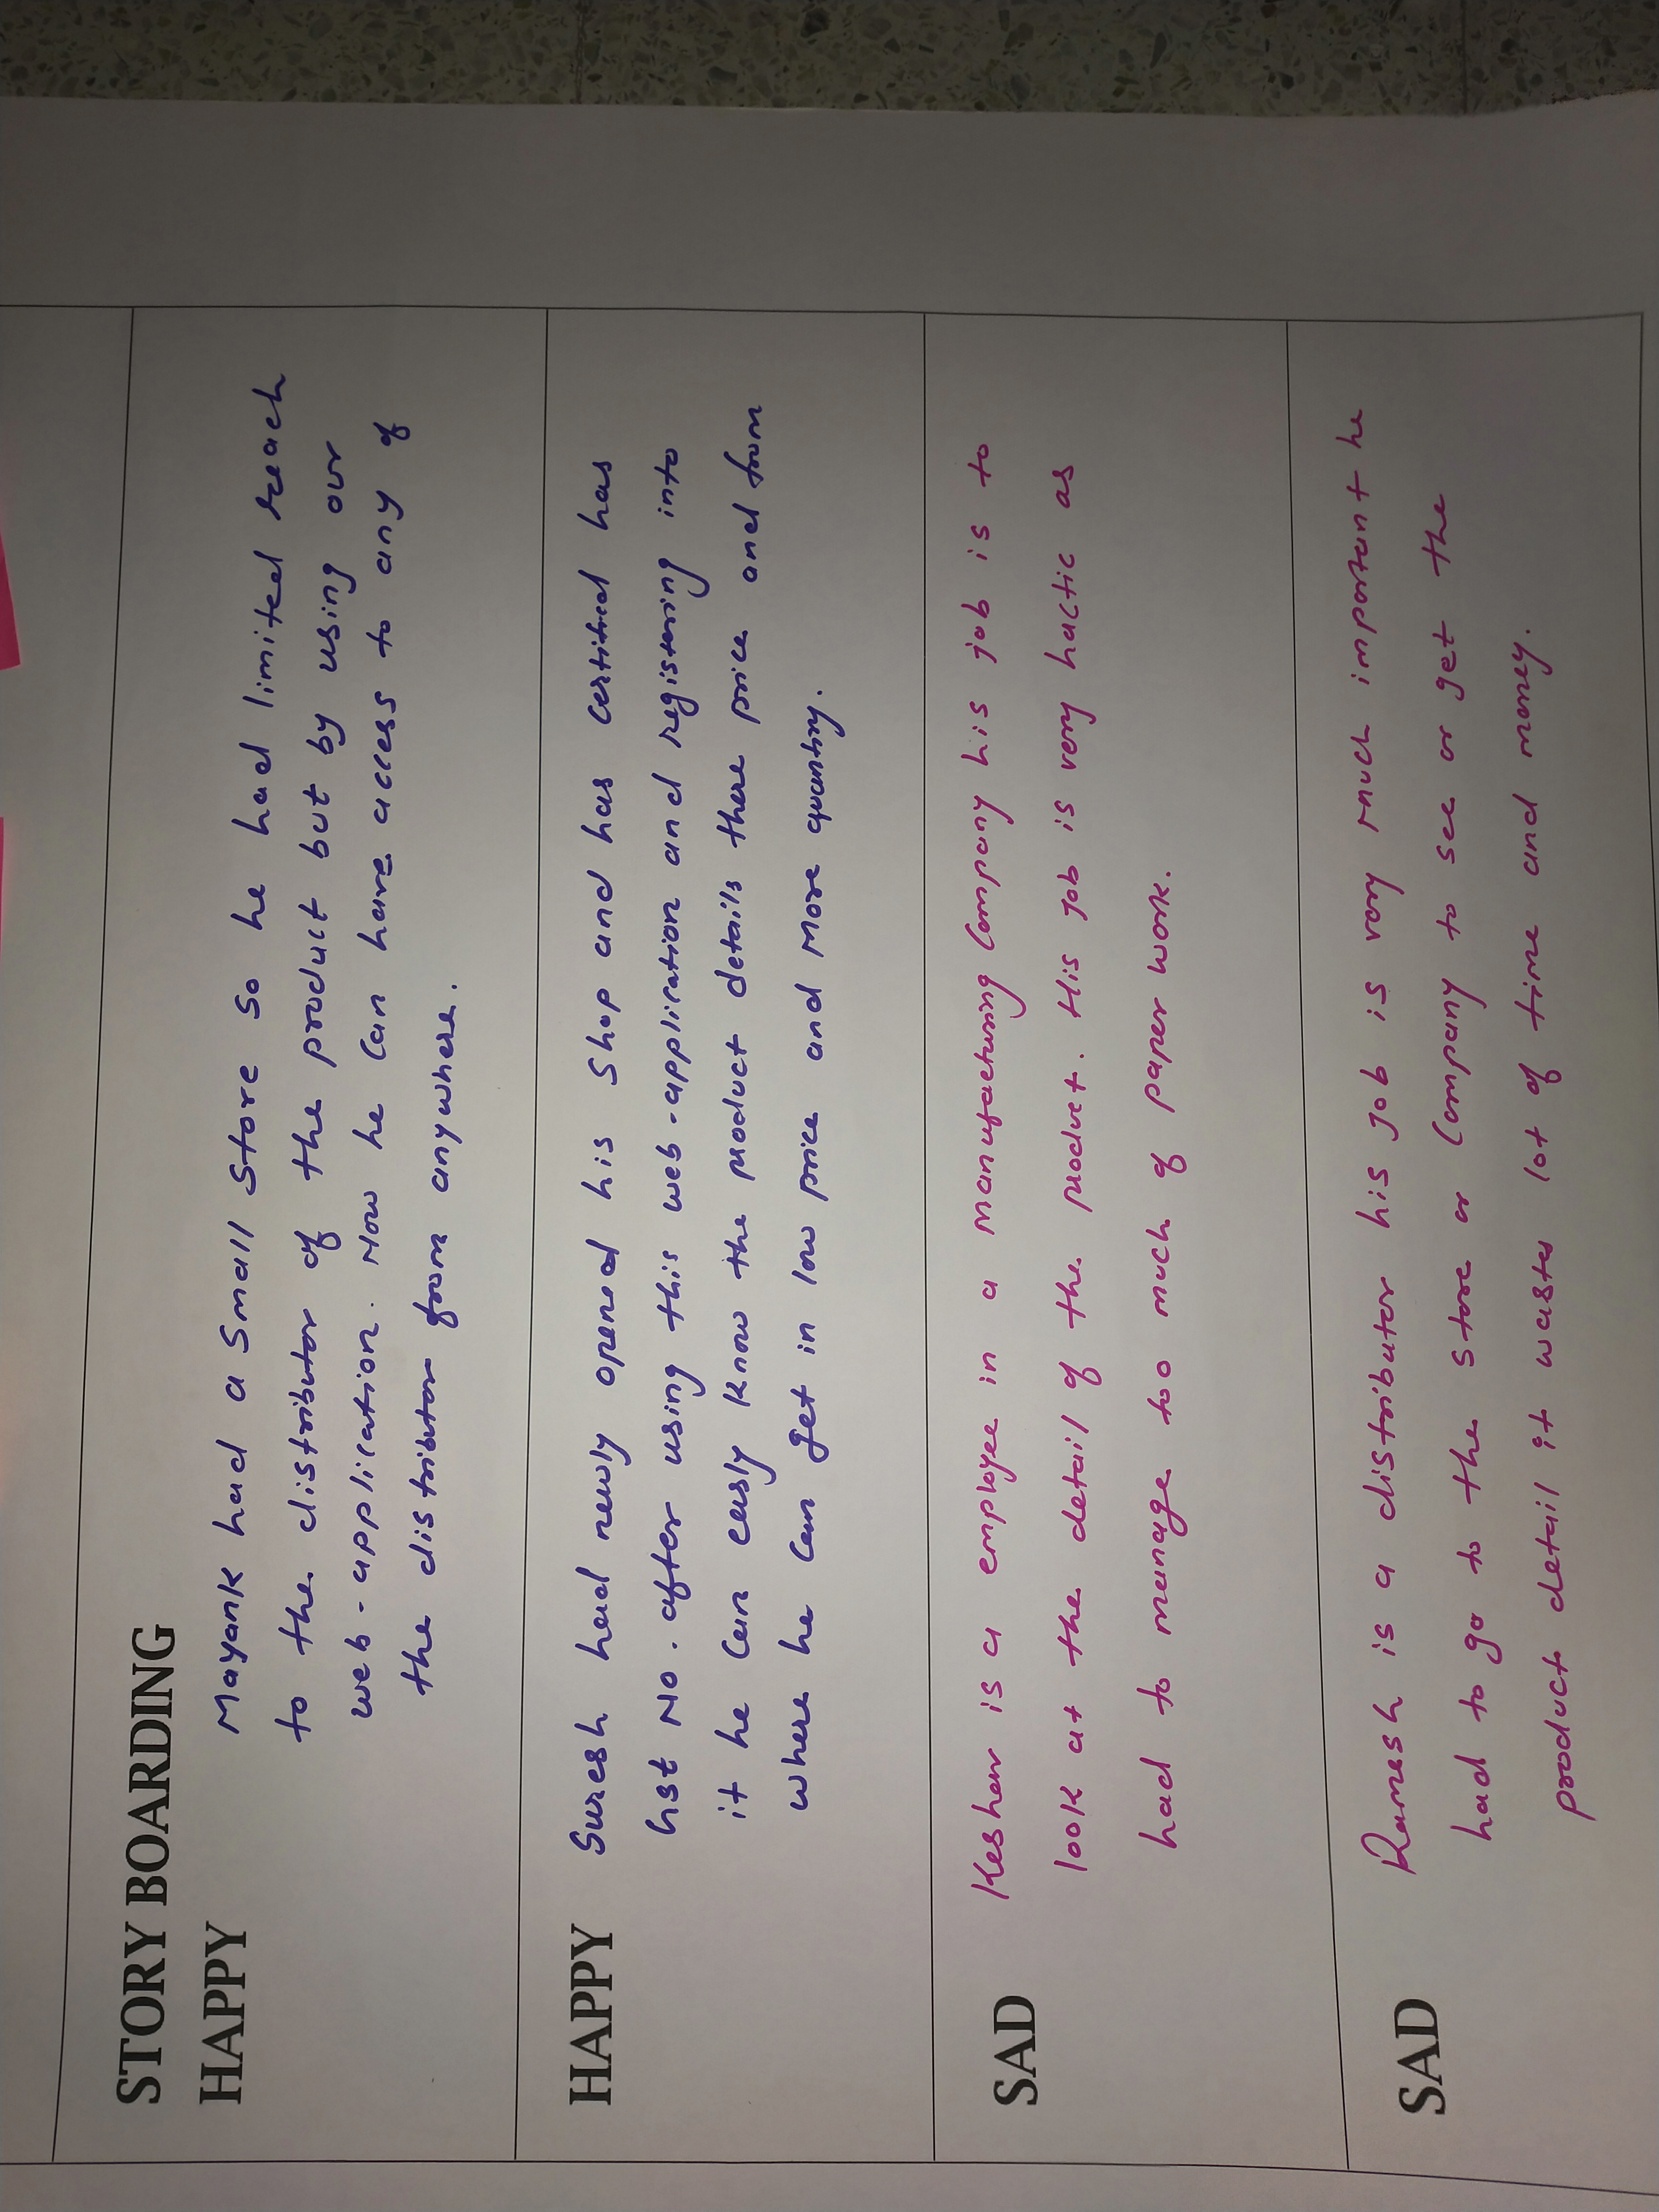 STORY BOARDING
HAPPY
Mayank had a Small Store So he had limited reach
to the distributor of the product but by using our
web-application. Now he Can have access to any of
the distributor from anywhere.
HAPPY
Suresh had newly opened his Shop and has certified has
No. after using this web-application and registering into
it he Can easly Know the product details there price and from
where he Can get in low price and More quantity.
SAD
is a employee in a manufacturing Company his job is to
look at the detail of the product. His job is very hactic as
had to manage too much of paper work.
SAD
Ramesh is a distributor his job is very much important he
had to go to the store or Company to see or get the
product detail it wastes lot of time and money.